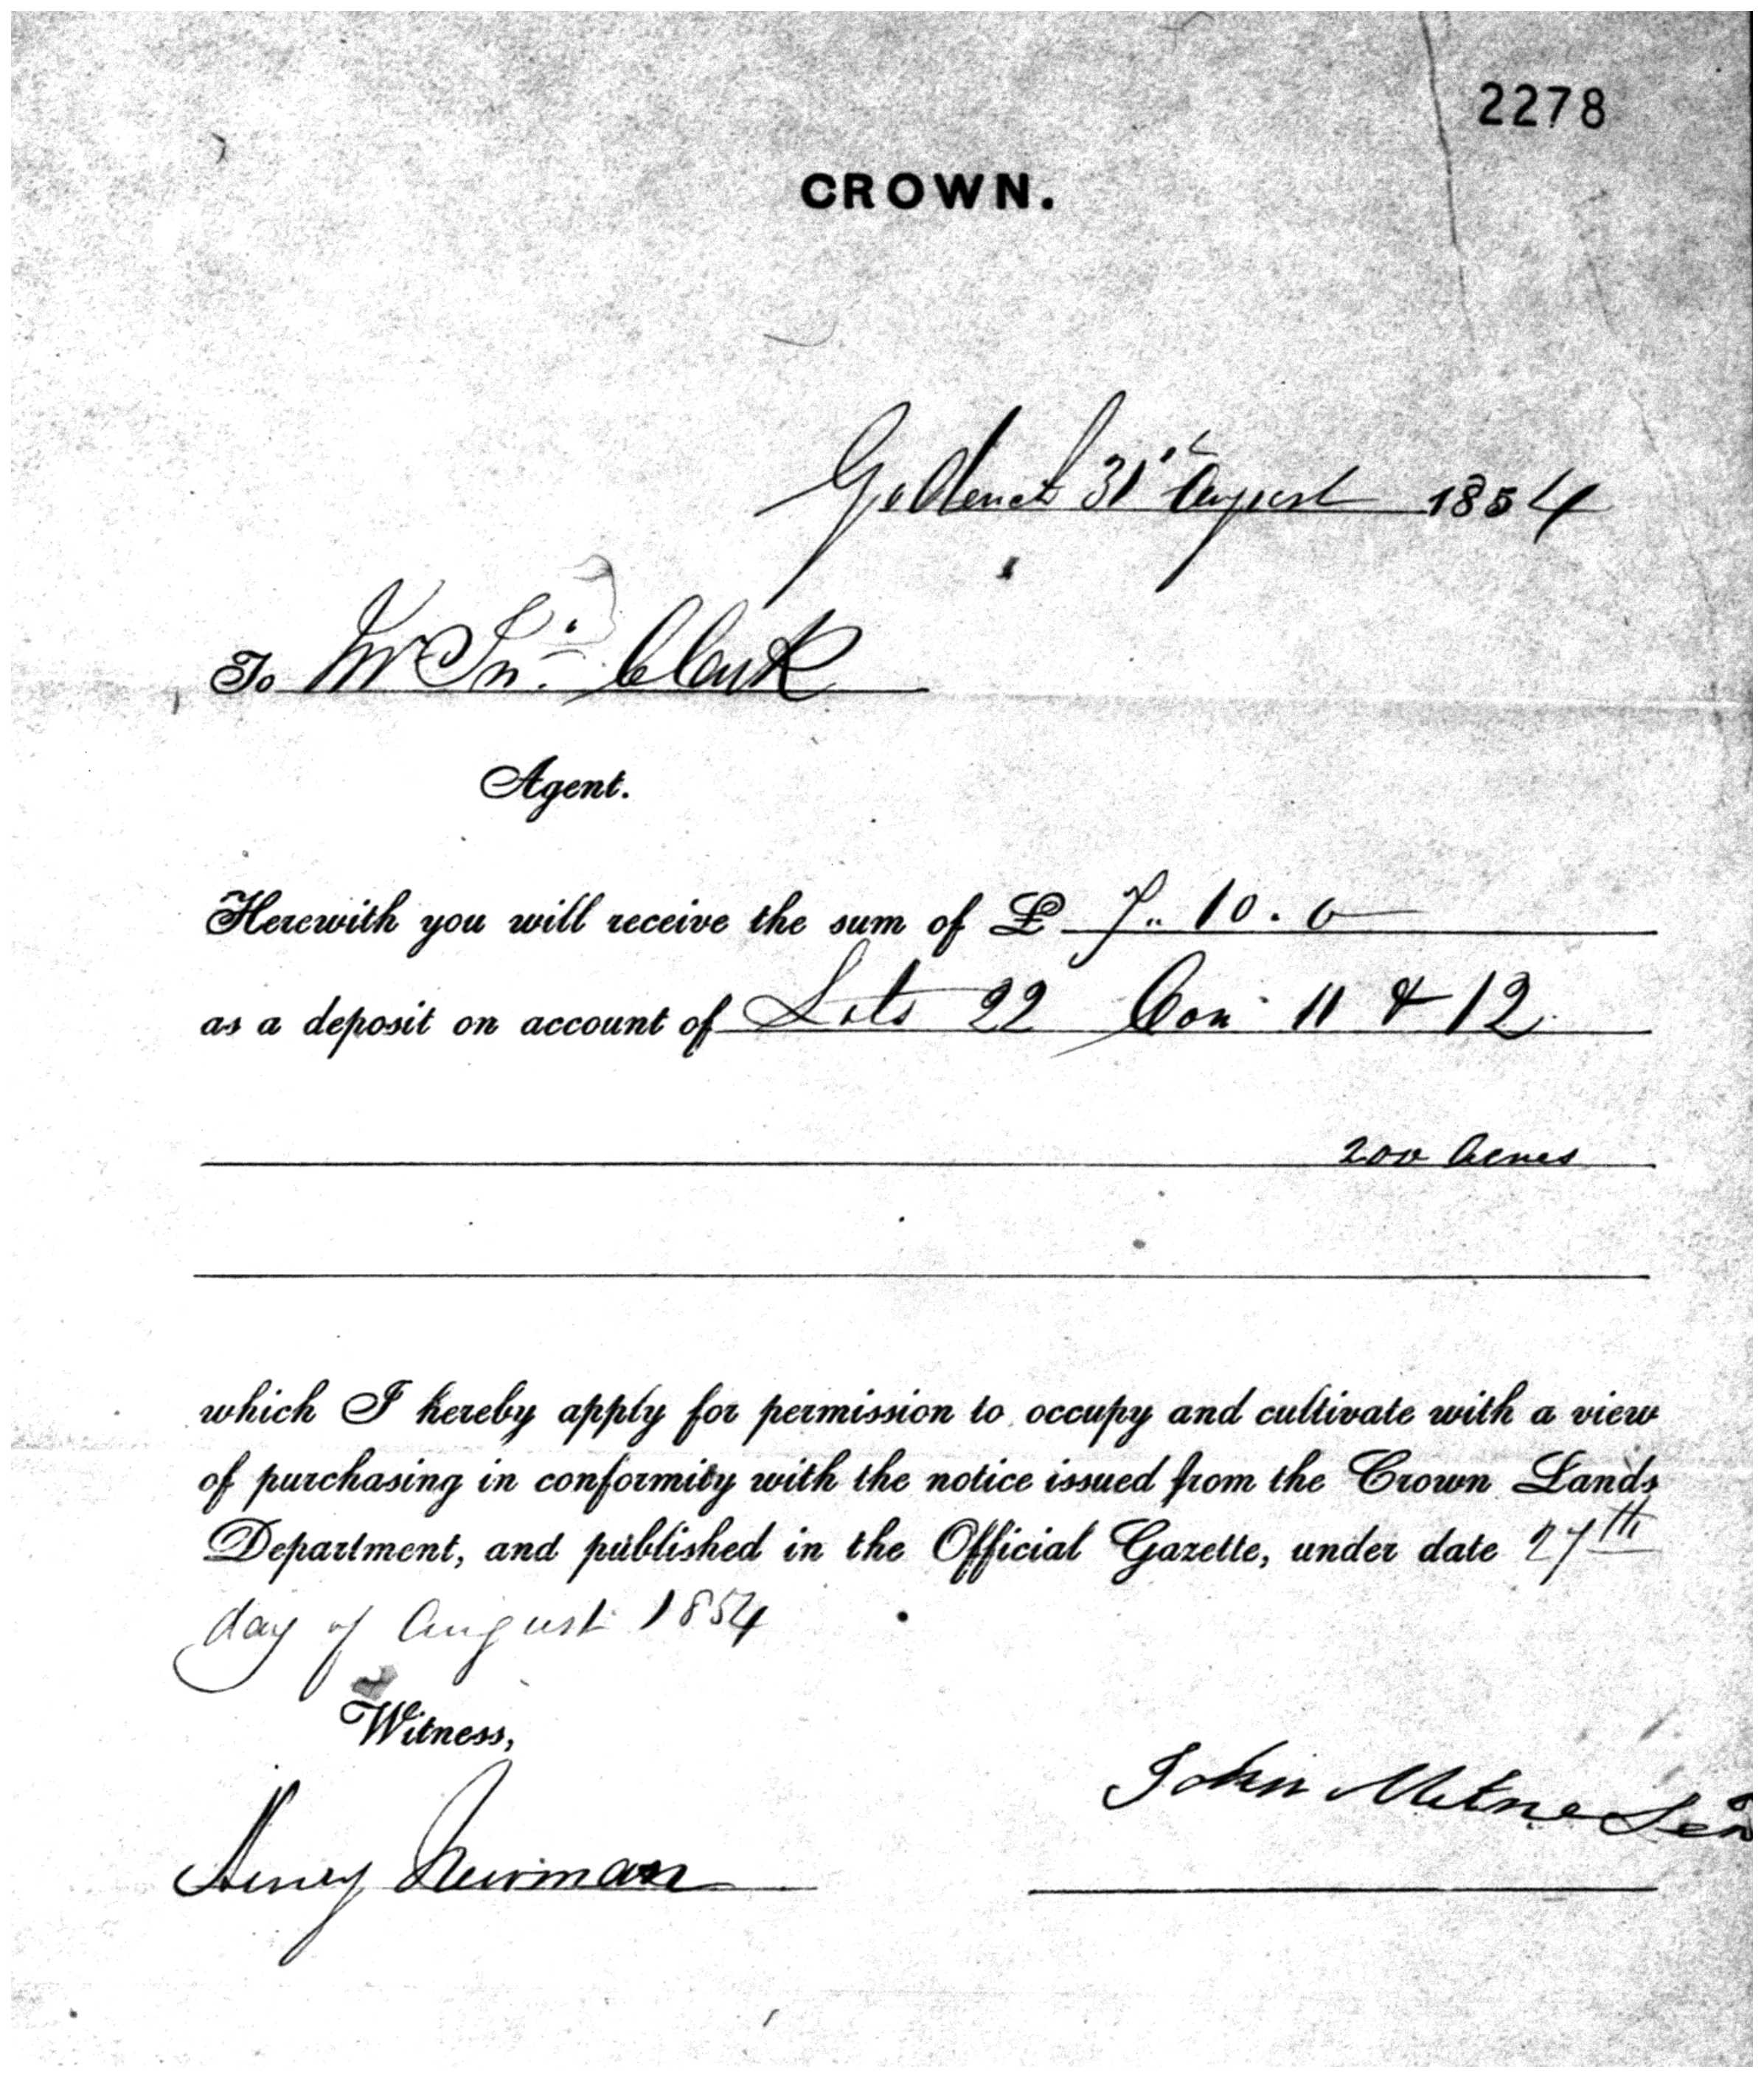 2278
CROWN.
Goderich 31st August 1854
To Mr Jno. Clark
Agent.
Herewith you will receive the sum of £ 7.. 10. 0
as a deposit on account of Lots 22 Con 11 & 12.
200 Acres
which I hereby apply for permission to occupy and cultivate with a view
of purchasing in conformity with the notice issued from the Crown Lands
Department, and published in the Official Gazette, under date 27th
day of August 1854
Witness,
John Milne Sen
Henry Newman